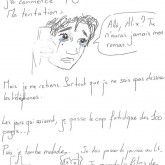 j'ai commencé
la tentation :
Allo, Alix ? Tu
n'auras jamais mes
romans.
Mais je me retiens. Surtout que je ne sais pas dessiner
les téléphones.
Les jours qui suivent, je passe le cap fatidique des 100
pages...
Puis je tombe malade. Je dois passer la journée au lit.
Je les films de